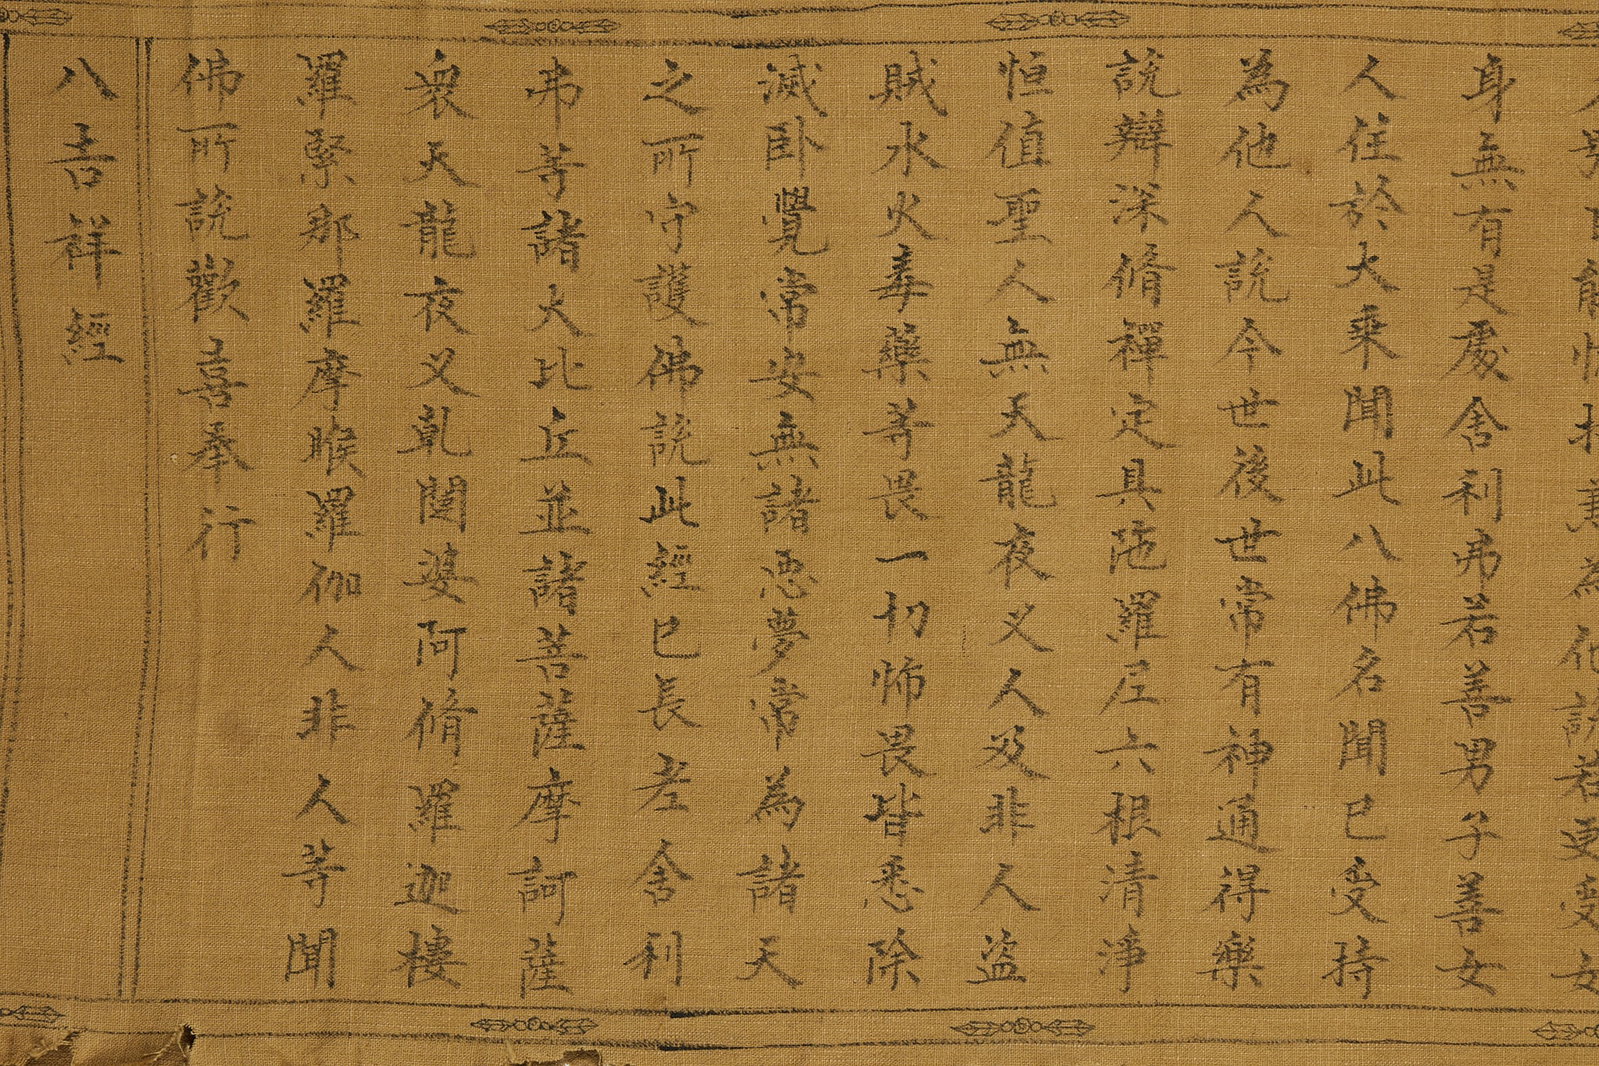 為他說若
身無有是處舍利弗若善男子善女
人住於大乘聞此八佛名聞已受持
為他人說今世後世常有神通得樂
說辯深脩禪定具陁羅尼六根清淨
恒值聖人無天龍夜叉人及非人盜
賊水火毒藥等畏一切怖畏皆悉除
滅卧覺常安無諸惡夢常為諸天
之所守護佛說此經已長老舍利
弗等諸大比丘並諸菩薩摩訶薩
衆天龍夜叉乹闥婆阿脩羅迦樓
羅緊那羅羅摩睺羅伽人非人等聞
佛所說歡喜奉行
八吉祥經